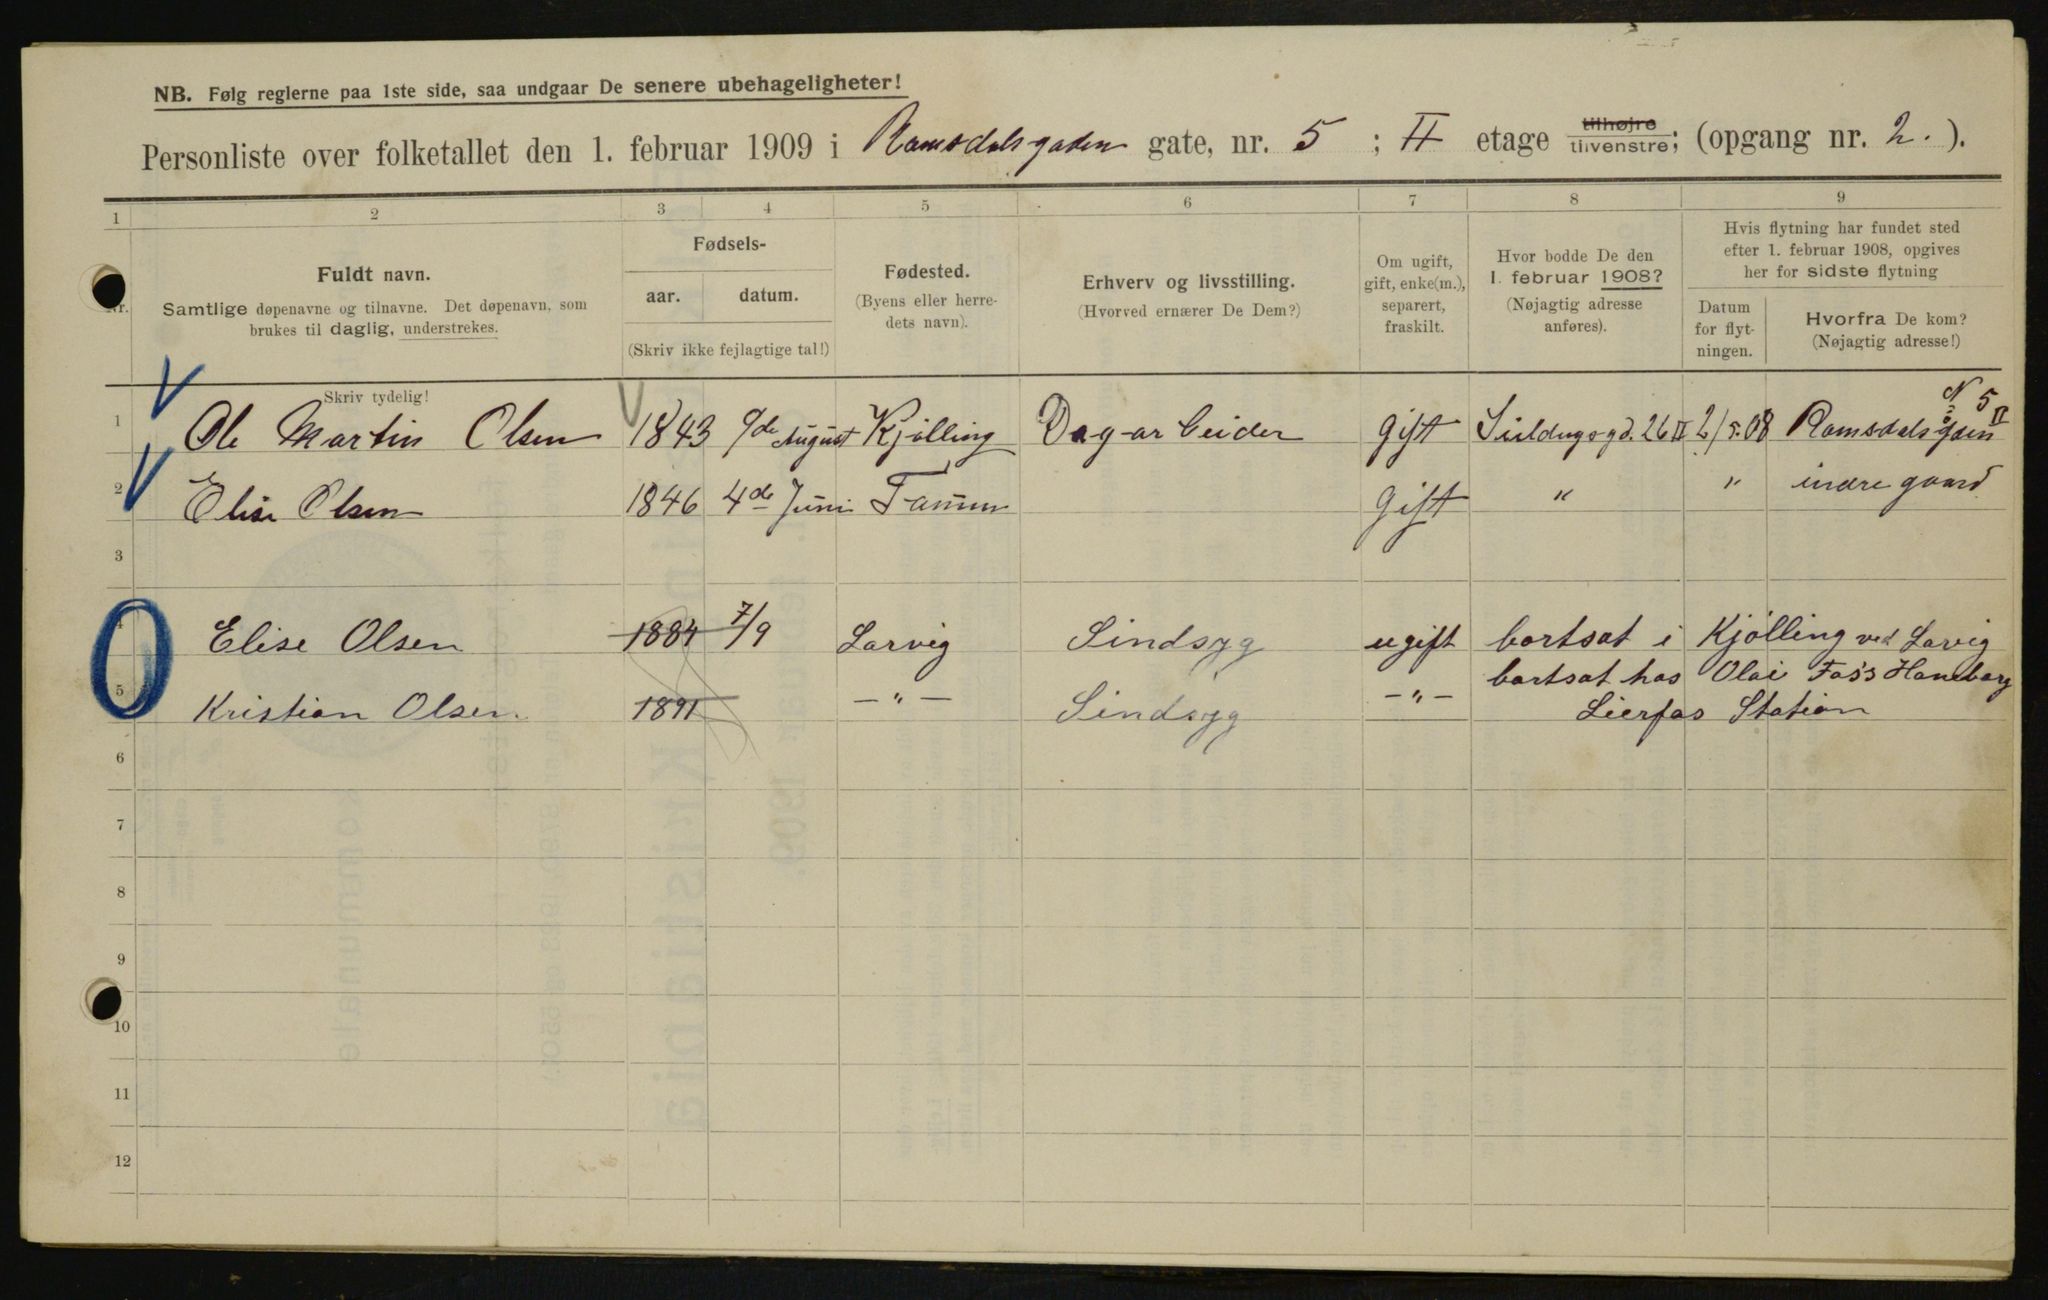 NB. Følg reglerne paa 1ste side, saa undgaar De senere ubehageligheter!
Personliste over folketallet den 1. februar 1909 i Ramsdalsgaden gate, nr. 5 ; II etage tilhøjre tilvenstre; (opgang nr. 2. ).
1 2 3 4 5 6 7 8 9
Nr.
Fuldt navn.
Samtlige døpenavne og tilnavne. Det døpenavn, som
brukes til daglig, understrekes.
Skriv tydelig!
Fødsels-
aar. datum.
(Skriv ikke fejlagtige tal!)
Fødested.
(Byens eller herre-
dets navn).
Erhverv og livsstilling.
(Hvorved ernærer De Dem?)
Om ugift,
gift, enke(m.),
separert,
fraskilt.
Hvor bodde De den
1. februar 1908?
(Nøjagtig adresse
anføres).
Hvis flytning har fundet sted
efter 1. februar 1908, opgives
her for sidste flytning
Datum
for flyt-
ningen.
Hvorfra De kom?
(Nøjagtig adresse!)
N 5 II
1 Ole Martin Olsen 1843 9de August Kjølling Dagarbeider gift 26 II 2/5.08 Ramsdalsgaden
2 Elise Olsen 1846 4de Juni Tanum gift " " indre gaard
3
4 Elise Olsen 1884 7/9 Larvig Sindsyg ugift bortsat i Kjølling ved Larvig
5 Kristian Olsen 1891 -"- Sindsyg -"- bortsat hos Olai Foss Haneborg
Lierfos Station
6
7
8
9
10
11
12